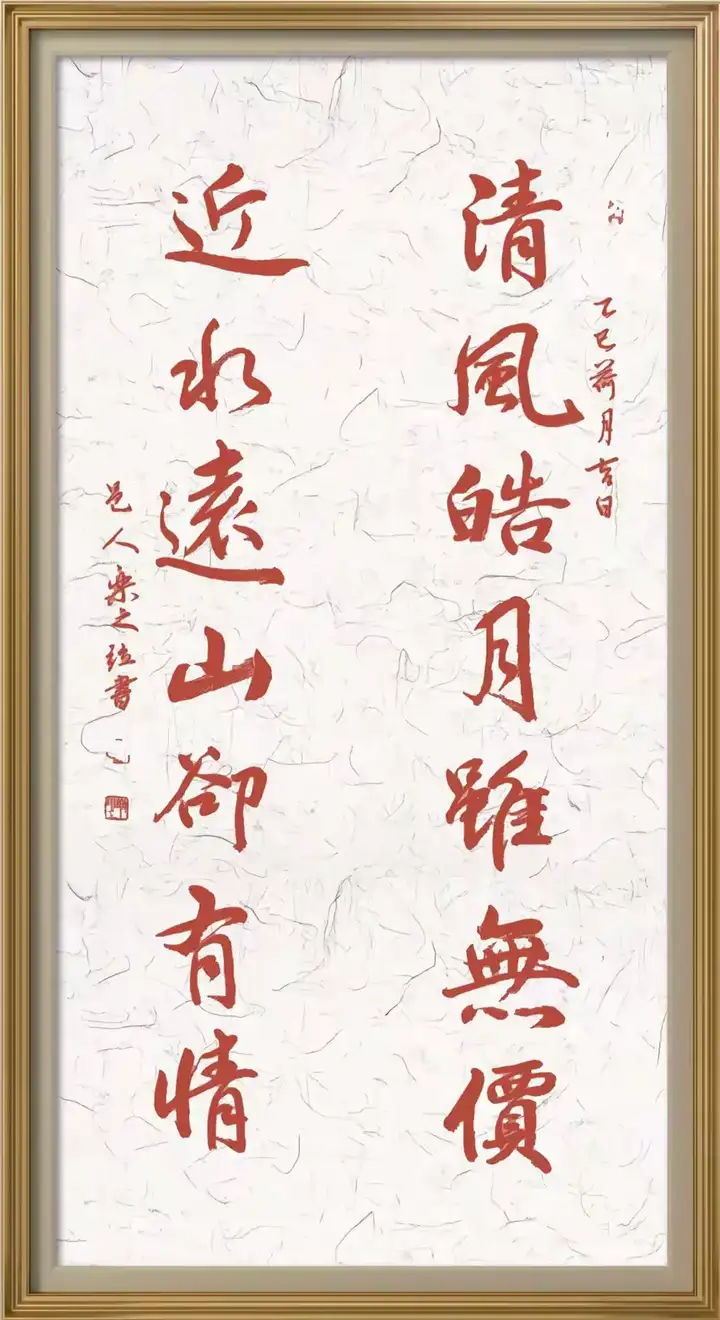 乙巳荷月吉日
清風皓月雖無價
近水遠山卻有情
邑人樂之
書